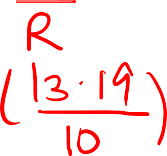 R
(13·19/10)